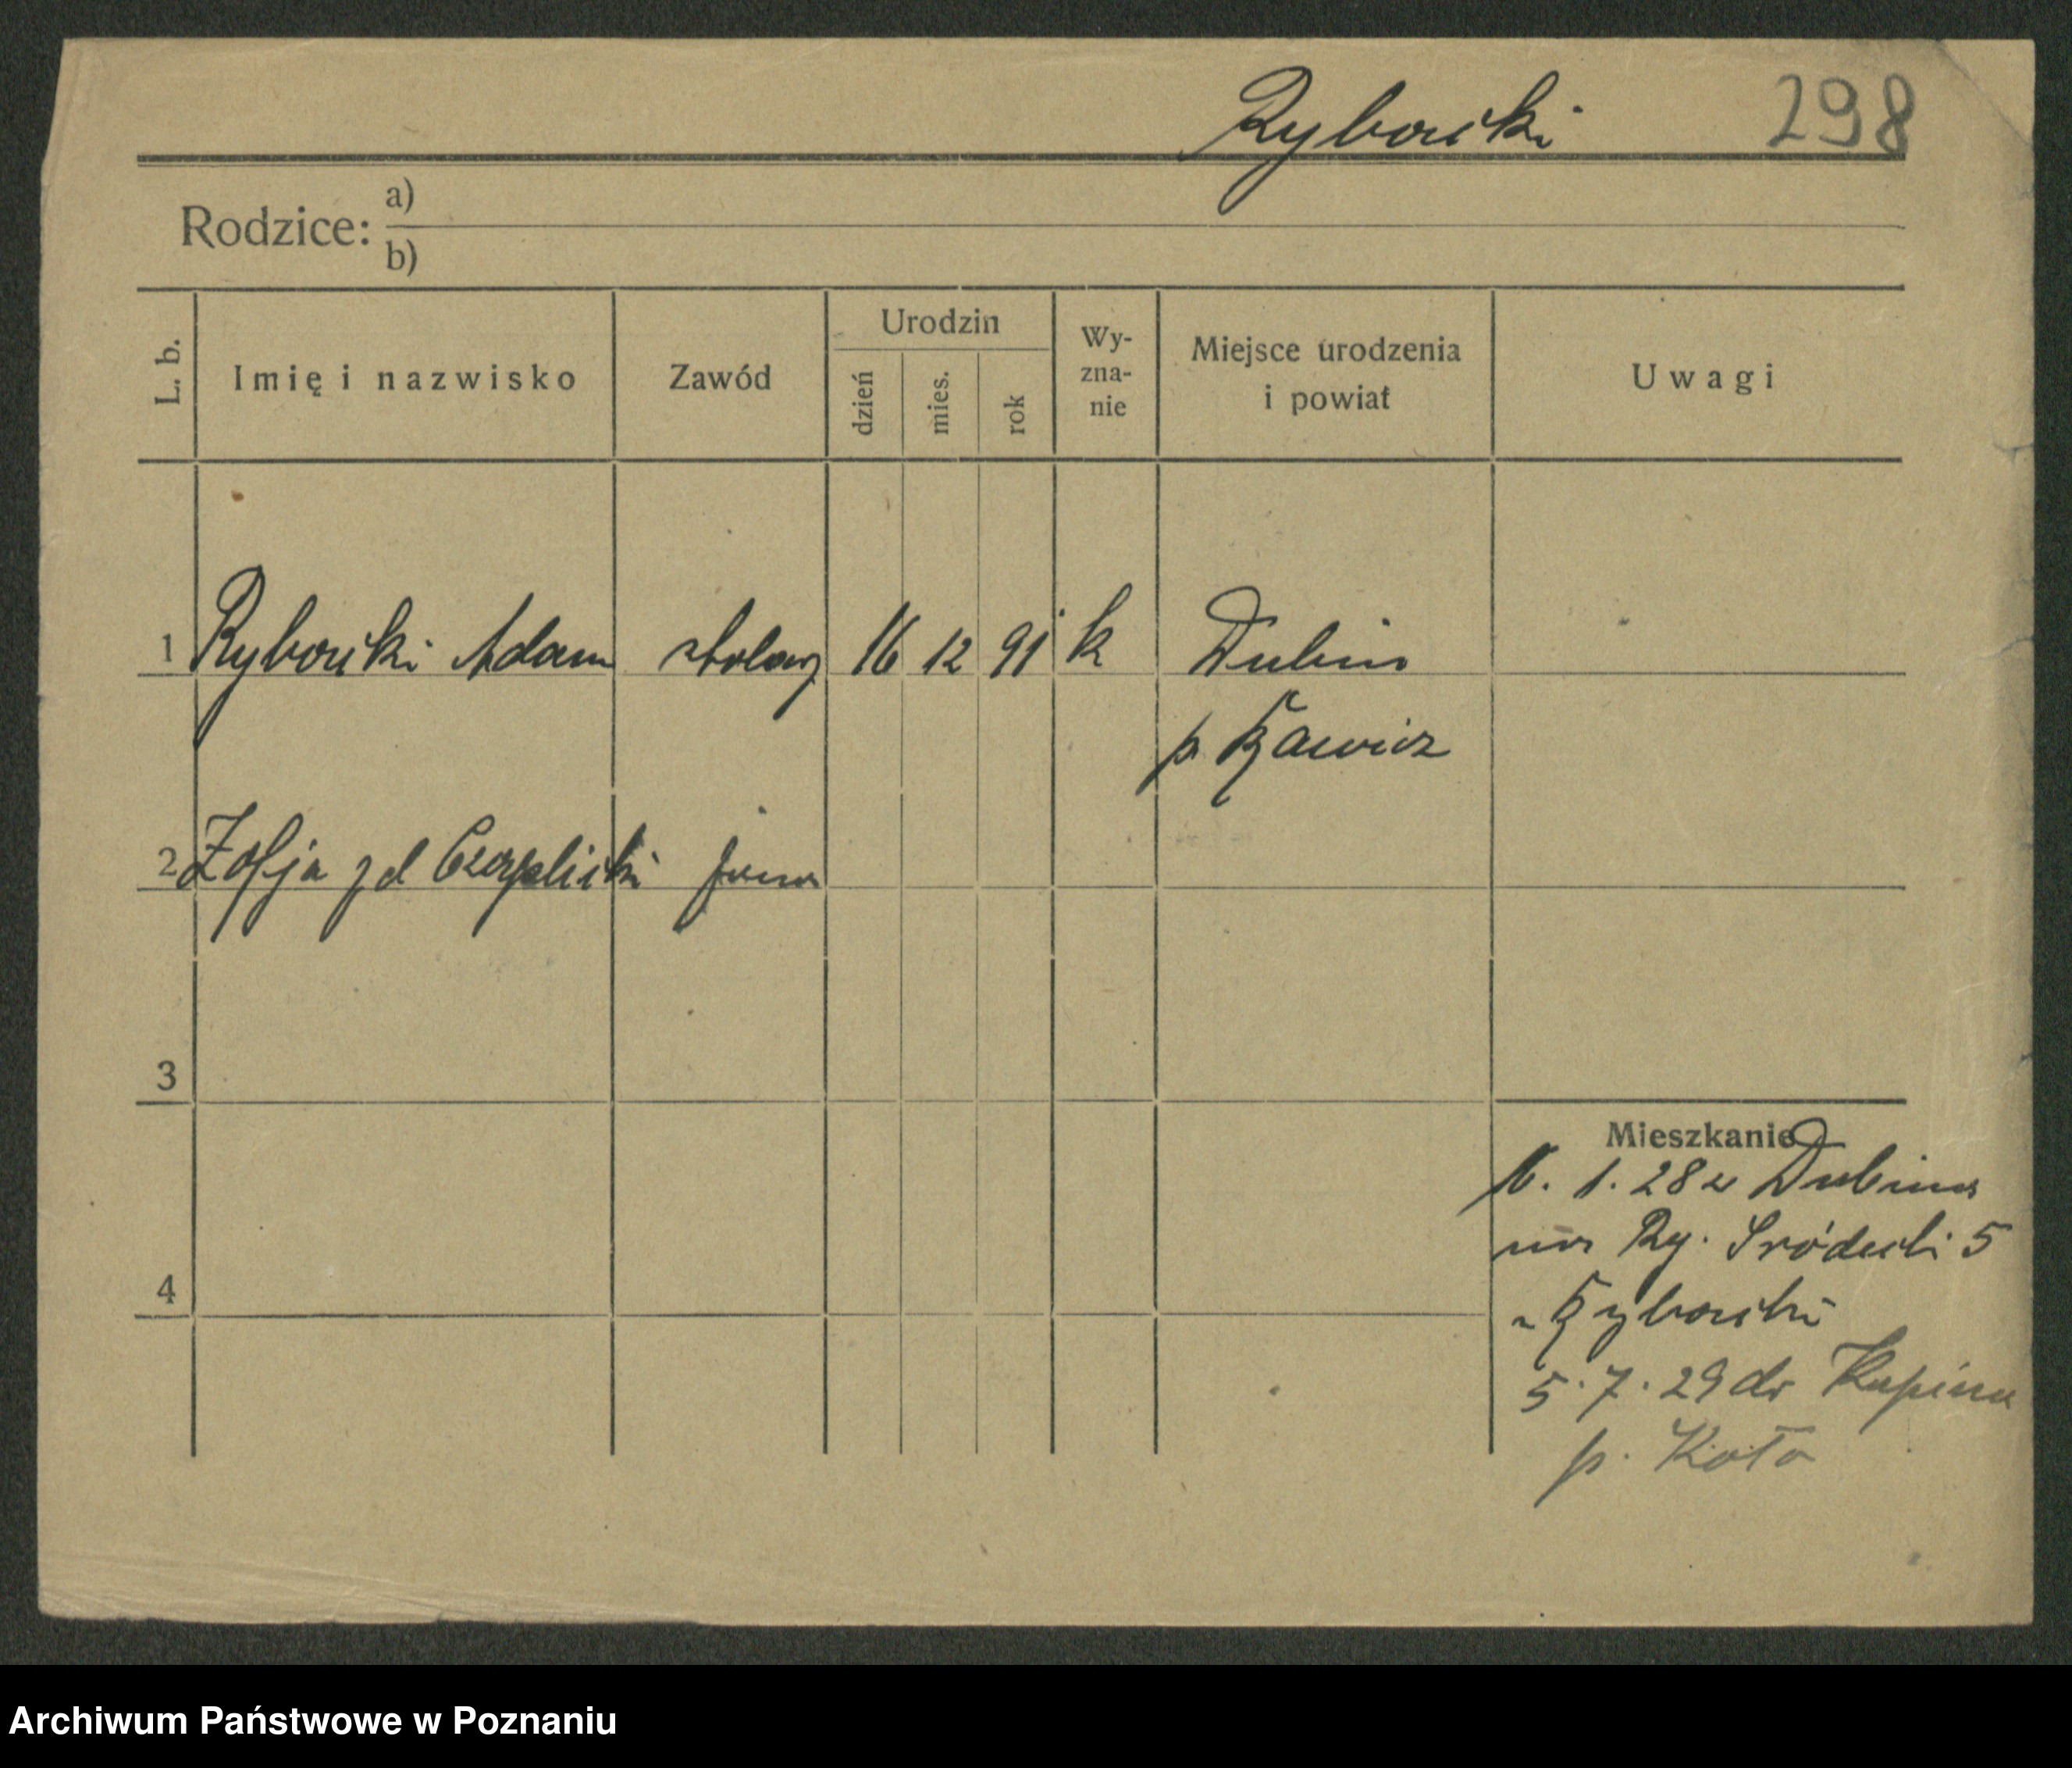 Rybarski 298
Rodzice: a)
b)
L. b. Imię i nazwisko Zawód Urodzin dzień mies. rok Wy-zna-nie Miejsce urodzenia i powiat Uwagi
1 Rybarski Adam stolarz 16 12 91 k Dubin
p Rawicz
2 Zofja
3
4
Mieszkanie
16. 1. 28 z Dubina
na Ry. Śródecki 5
Rybarski
5. 7. 29 do
p. Koło
Archiwum Państwowe w Poznaniu